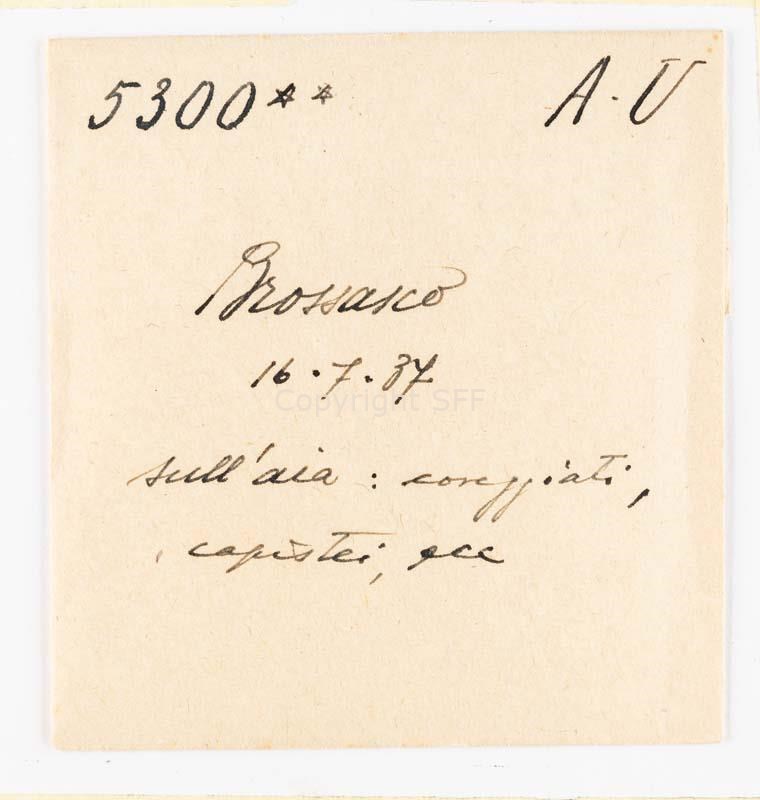 5300** A·V
Brossasco
16·7·37
Copyright SFF
sull'aia : coreggiati,
capistei, ecc